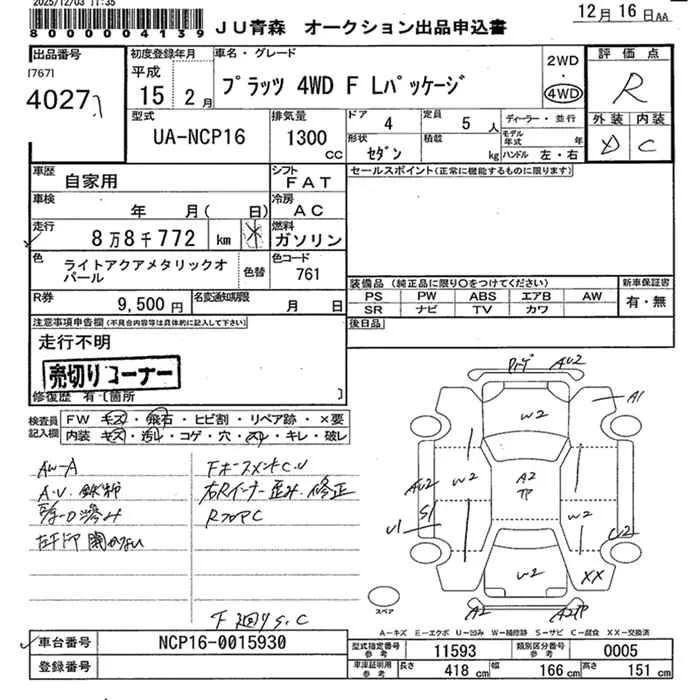 2025/12/03 11:35
8000004139
JU青森 オークション出品申込書
12月16日AA
出品番号
[767]
4027
初度登録年月
平成
15 2月
車名・グレード
プラッツ 4WD F Lパッケージ
2WD
・
4WD
評価点
R
外装 内装
D C
型式
UA-NCP16
排気量
1300
CC
ドア 4
定員 5 人
形状 セダン
積載 kg
ディーラー・並行
モデル年式 年
ハンドル 左・右
車歴 自家用
シフト FAT
車検 年 月( 日)
冷房 AC
走行 8万8千772 km ※
燃料 ガソリン
色 ライトアクアメタリックオパール
色替
色コード 761
R券 9,500円
名変通知期限 月 日
セールスポイント(正常に機能するものに限ります)
装備品(純正品に限り○をつけてください)
PS PW ABS エアB AW
SR ナビ TV カワ
新車保証書
有・無
後日品
注意事項申告欄(不具合内容等は具体的に記入して下さい)
走行不明
売切りコーナー
修復歴 有 [箇所 ]
検査員記入欄
FW キズ・飛石・ヒビ割・リペア跡・×要
内装 キズ・汚れ・コゲ・穴・スレ・キレ・破レ
AW-A
A.U.鉄粉
左千ドア 開かない
FホースメントC.U
右Rインナー歪み.修正
RフロアC
F廻りS.C
AU2
A1
W2
AU2
W2
A2
W2
S1
U1
U2
W2
XX
A2
スペア
A-キズ E-エクボ U-凹み W-補修跡 S-サビ C-腐食 XX-交換済
車台番号 NCP16-0015930
登録番号
型式指定番号 参考 11593
類別区分番号 参考 0005
車庫証明用 参考 長さ 418 cm 幅 166 cm 高さ 151 cm